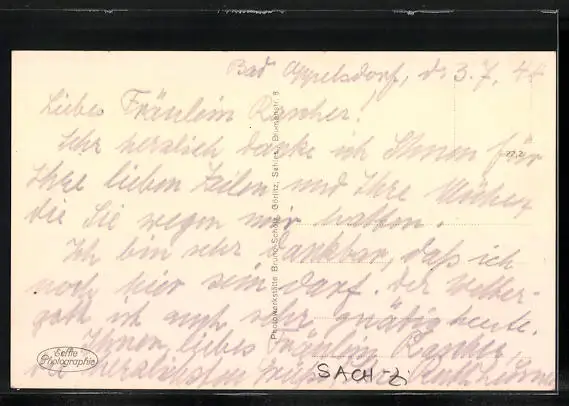 Bad Oppelsdorf, d. 3.7.44
Liebes Fräulein Rascher!
Sehr herzlich danke ich Ihnen für
Ihre lieben Zeilen und Ihre Mühen
die Sie wegen mir hatten.
Ich bin sehr dankbar, daß ich
noch hier sein darf. Der Wetter-
gott ist auch sehr gnädig heute.
Ihnen, liebes Fräulein Rascher
die herzlichsten Grüße
Photowerkstätte Bruno Scholz, Görlitz, Schles., Blumenstr. 8
Echte
Photographie
SACH-Zi